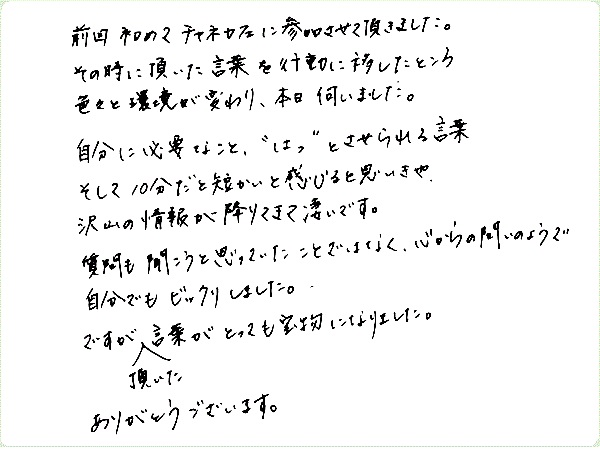 前回 初めて チャネカフェに参加させて頂きました。
その時に頂いた言葉を行動に移したところ
色々と環境が変わり、本日伺いました。
自分に必要なこと、“はっ”とさせられる言葉
そして10分だと短かいと感じると思いきや、
沢山の情報が降りてきて凄いです。
質問も聞こうと思っていたことではなく、心からの問いのようで
自分でもビックリしました。
ですが言葉がとっても宝物になりました。
頂いた
ありがとうございます。